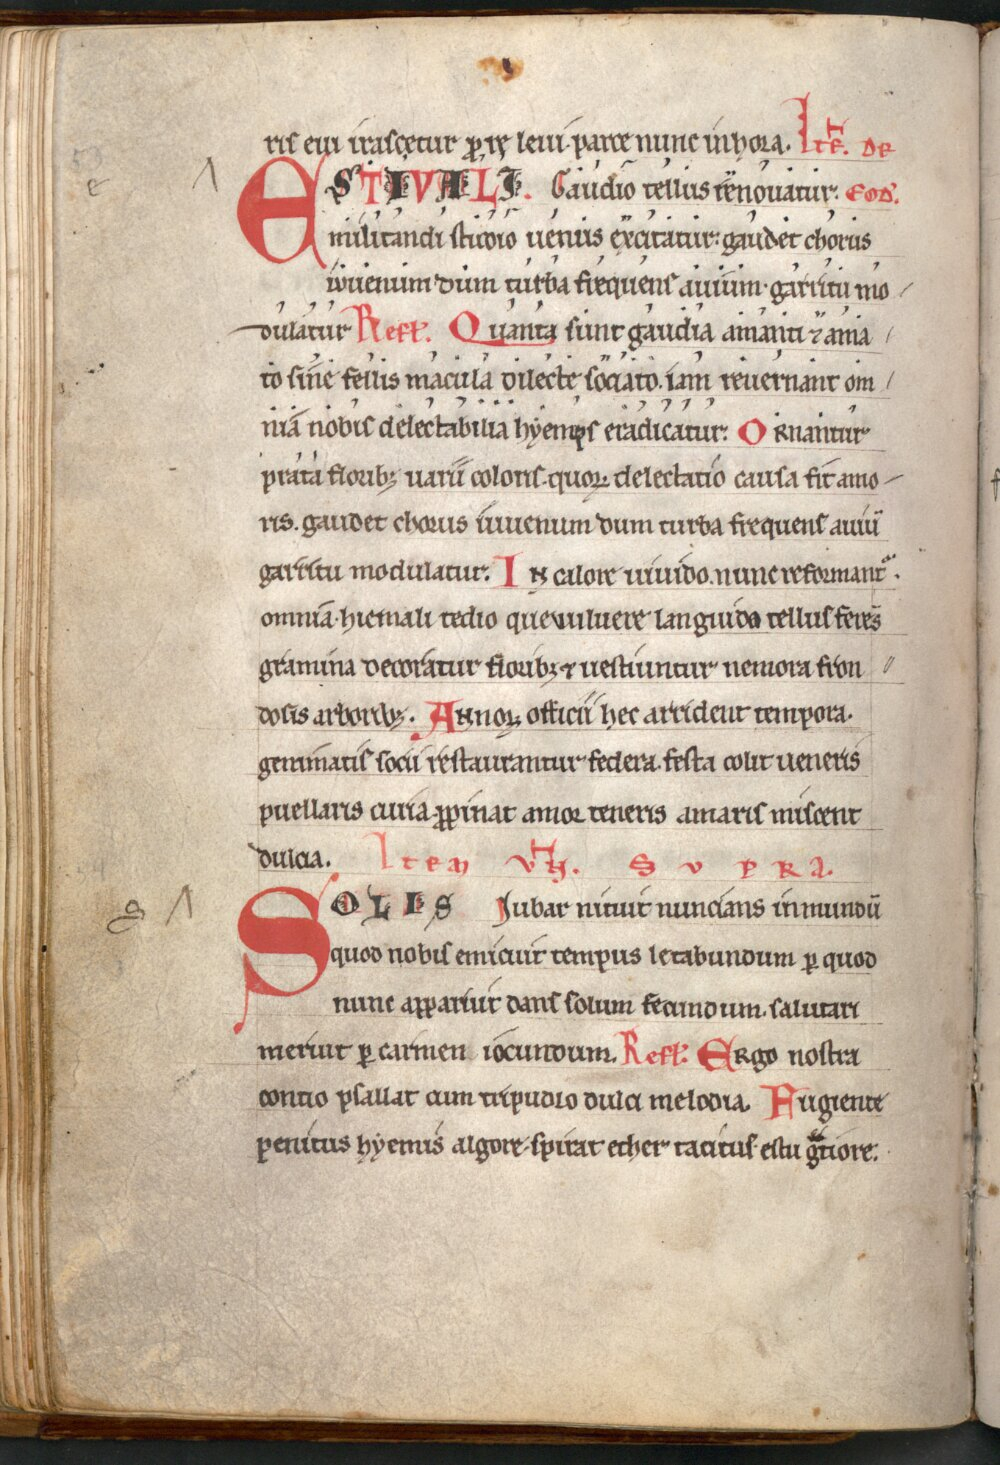 ris eui irascetur ꝓ re leui parce nunc in hora. Itē. De
ESTIVALI. Gaudio tellus renouatur. eod.
militandi studio uenus excitatur. gaudet chorus
iuuenum dum turba frequens auium. garritu mo
dulatur Refł. Quanta sunt gaudia amanti ⁊ ama
to sine fellis macula dilecte sociato. iam reuernant om
nia nobis delectabilia hyemps eradicatur. Ornantur
prata floribꝫ uarii coloris. quoꝝ delectatio causa fit amo
ris. gaudet chorus iuuenum dum turba frequens auiū
garritu modulatur. In calore uiuido. nunc reformant᷑.
omnia. hiemali tedio que uiluere languido tellus ferēs
gramina decoratur floribꝫ ⁊ uestiuntur nemora fron
dosis arboribꝫ. Annoꝝ officii hec arrident tempora.
geminatis socii restaurantur federa. festa colit ueneris
puellaris curia. ꝓpinat amor teneris amaris miscent
dulcia. Item vn̄. supra.
SOLIS Iubar nituit nuncians in mundū
quod nobis emicuit tempus letabundum ꝑ quod
nunc apparuit dans solum fecundum. salutari
meruit ꝑ carmen iocundum. Refł. Ergo nostra
contio psallat cum tripudio dulci melodia. Fugiente
penitus hyemis algore. spirat ether tacitus estu gᵃtiore.